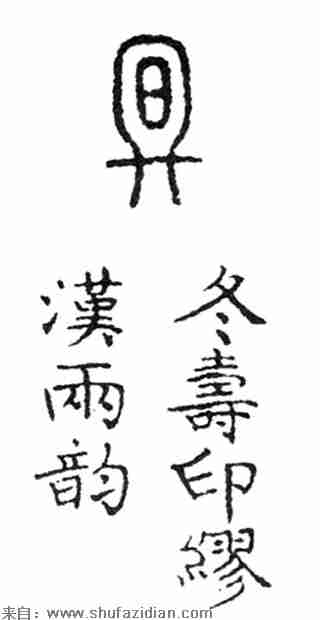 冬壽印繆
漢兩韵
来自：www.shufazidian.com